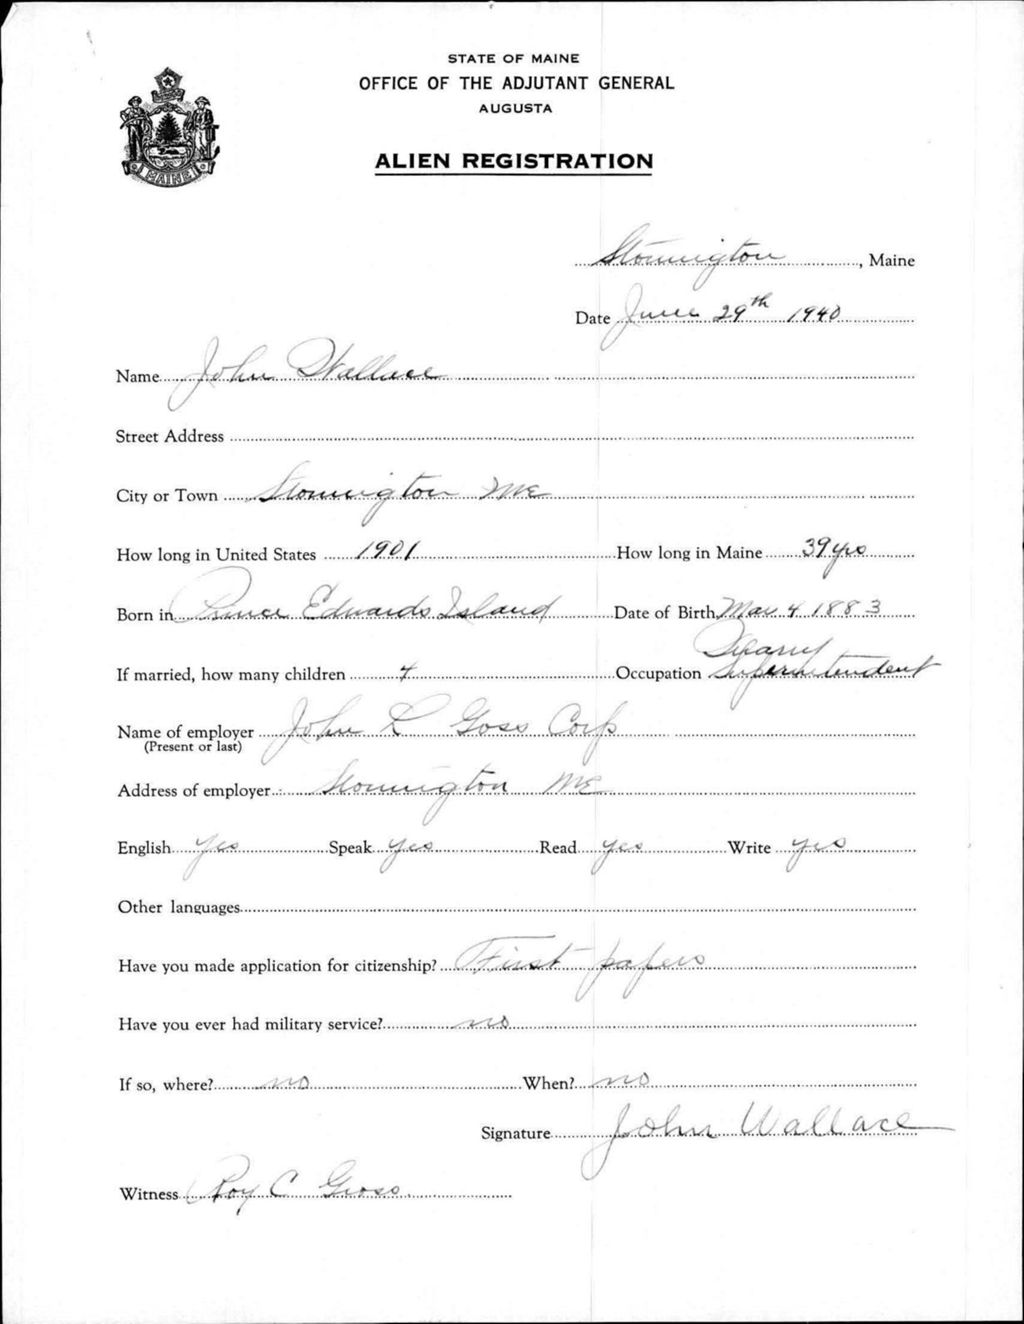 STATE OF MAINE
OFFICE OF THE ADJUTANT GENERAL
AUGUSTA
ALIEN REGISTRATION
MAINE
Stonington, Maine
Date June 29th 1940
Name John Wallace
Street Address
City or Town Stonington Me
How long in United States 1901 How long in Maine 39 yrs
Born in Prince Edwards Island Date of Birth Mar 4 1883
If married, how many children 4 Occupation Quarry Superintendent
Name of employer John L Goss Corp
(Present or last)
Address of employer Stonington ME
English yes Speak yes Read yes Write yes
Other languages
Have you made application for citizenship? First papers
Have you ever had military service? no
If so, where? no When? no
Signature John Wallace
Witness Roy C Gross